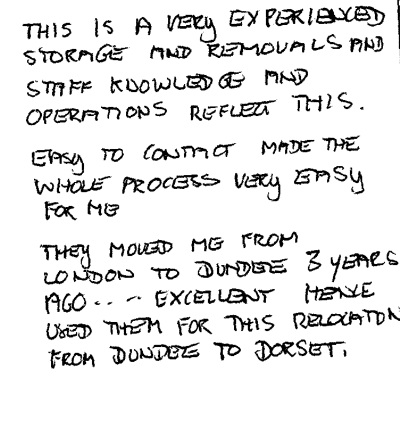 THIS IS A VERY EXPERIENCED
STORAGE AND REMOVALS AND
STAFF KNOWLEDGE AND
OPERATIONS REFLECT THIS.
EASY TO CONTACT MADE THE
WHOLE PROCESS VERY EASY
FOR ME
THEY MOVED ME FROM
LONDON TO DUNDEE 3 YEARS
AGO... - EXCELLENT HENCE
USED THEM FOR THIS RELOCATON
FROM DUNDEE TO DORSET.